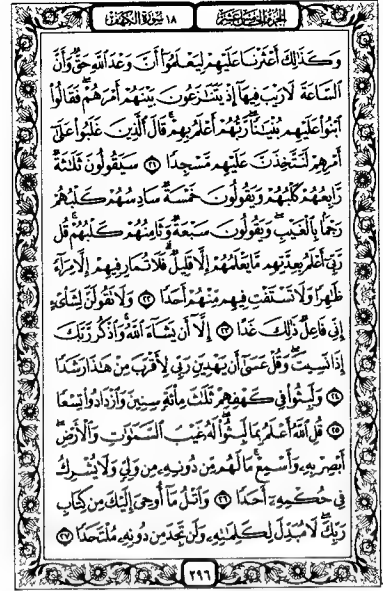 الجزء الخامس عشر ١٨ سورة الكهف
وَكَذَٰلِكَ أَعْثَرْنَا عَلَيْهِمْ لِيَعْلَمُوٓا۟ أَنَّ وَعْدَ ٱللَّهِ حَقٌّ وَأَنَّ
ٱلسَّاعَةَ لَا رَيْبَ فِيهَآ إِذْ يَتَنَٰزَعُونَ بَيْنَهُمْ أَمْرَهُمْ ۖ فَقَالُوا۟
ٱبْنُوا۟ عَلَيْهِم بُنْيَٰنًا ۖ رَّبُّهُمْ أَعْلَمُ بِهِمْ ۚ قَالَ ٱلَّذِينَ غَلَبُوا۟ عَلَىٰٓ
أَمْرِهِمْ لَنَتَّخِذَنَّ عَلَيْهِم مَّسْجِدًا ٢١ سَيَقُولُونَ ثَلَٰثَةٌ
رَّابِعُهُمْ كَلْبُهُمْ وَيَقُولُونَ خَمْسَةٌ سَادِسُهُمْ كَلْبُهُمْ
رَجْمًۢا بِٱلْغَيْبِ ۖ وَيَقُولُونَ سَبْعَةٌ وَثَامِنُهُمْ كَلْبُهُمْ ۚ قُل
رَّبِّىٓ أَعْلَمُ بِعِدَّتِهِم مَّا يَعْلَمُهُمْ إِلَّا قَلِيلٌ ۗ فَلَا تُمَارِ فِيهِمْ إِلَّا مِرَآءً
ظَٰهِرًا وَلَا تَسْتَفْتِ فِيهِم مِّنْهُمْ أَحَدًا ٢٢ وَلَا تَقُولَنَّ لِشَا۟ىْءٍ
إِنِّى فَاعِلٌ ذَٰلِكَ غَدًا ٢٣ إِلَّآ أَن يَشَآءَ ٱللَّهُ ۚ وَٱذْكُر رَّبَّكَ
إِذَا نَسِيتَ وَقُلْ عَسَىٰٓ أَن يَهْدِيَنِ رَبِّى لِأَقْرَبَ مِنْ هَٰذَا رَشَدًا
٢٤ وَلَبِثُوا۟ فِى كَهْفِهِمْ ثَلَٰثَ مِا۟ئَةٍ سِنِينَ وَٱزْدَادُوا۟ تِسْعًا
٢٥ قُلِ ٱللَّهُ أَعْلَمُ بِمَا لَبِثُوا۟ ۖ لَهُۥ غَيْبُ ٱلسَّمَٰوَٰتِ وَٱلْأَرْضِ ۖ
أَبْصِرْ بِهِۦ وَأَسْمِعْ ۚ مَا لَهُم مِّن دُونِهِۦ مِن وَلِىٍّ وَلَا يُشْرِكُ
فِى حُكْمِهِۦٓ أَحَدًا ٢٦ وَٱتْلُ مَآ أُوحِىَ إِلَيْكَ مِن كِتَابِ
رَبِّكَ ۖ لَا مُبَدِّلَ لِكَلِمَٰتِهِۦ وَلَن تَجِدَ مِن دُونِهِۦ مُلْتَحَدًا ٢٧
٢٩٦